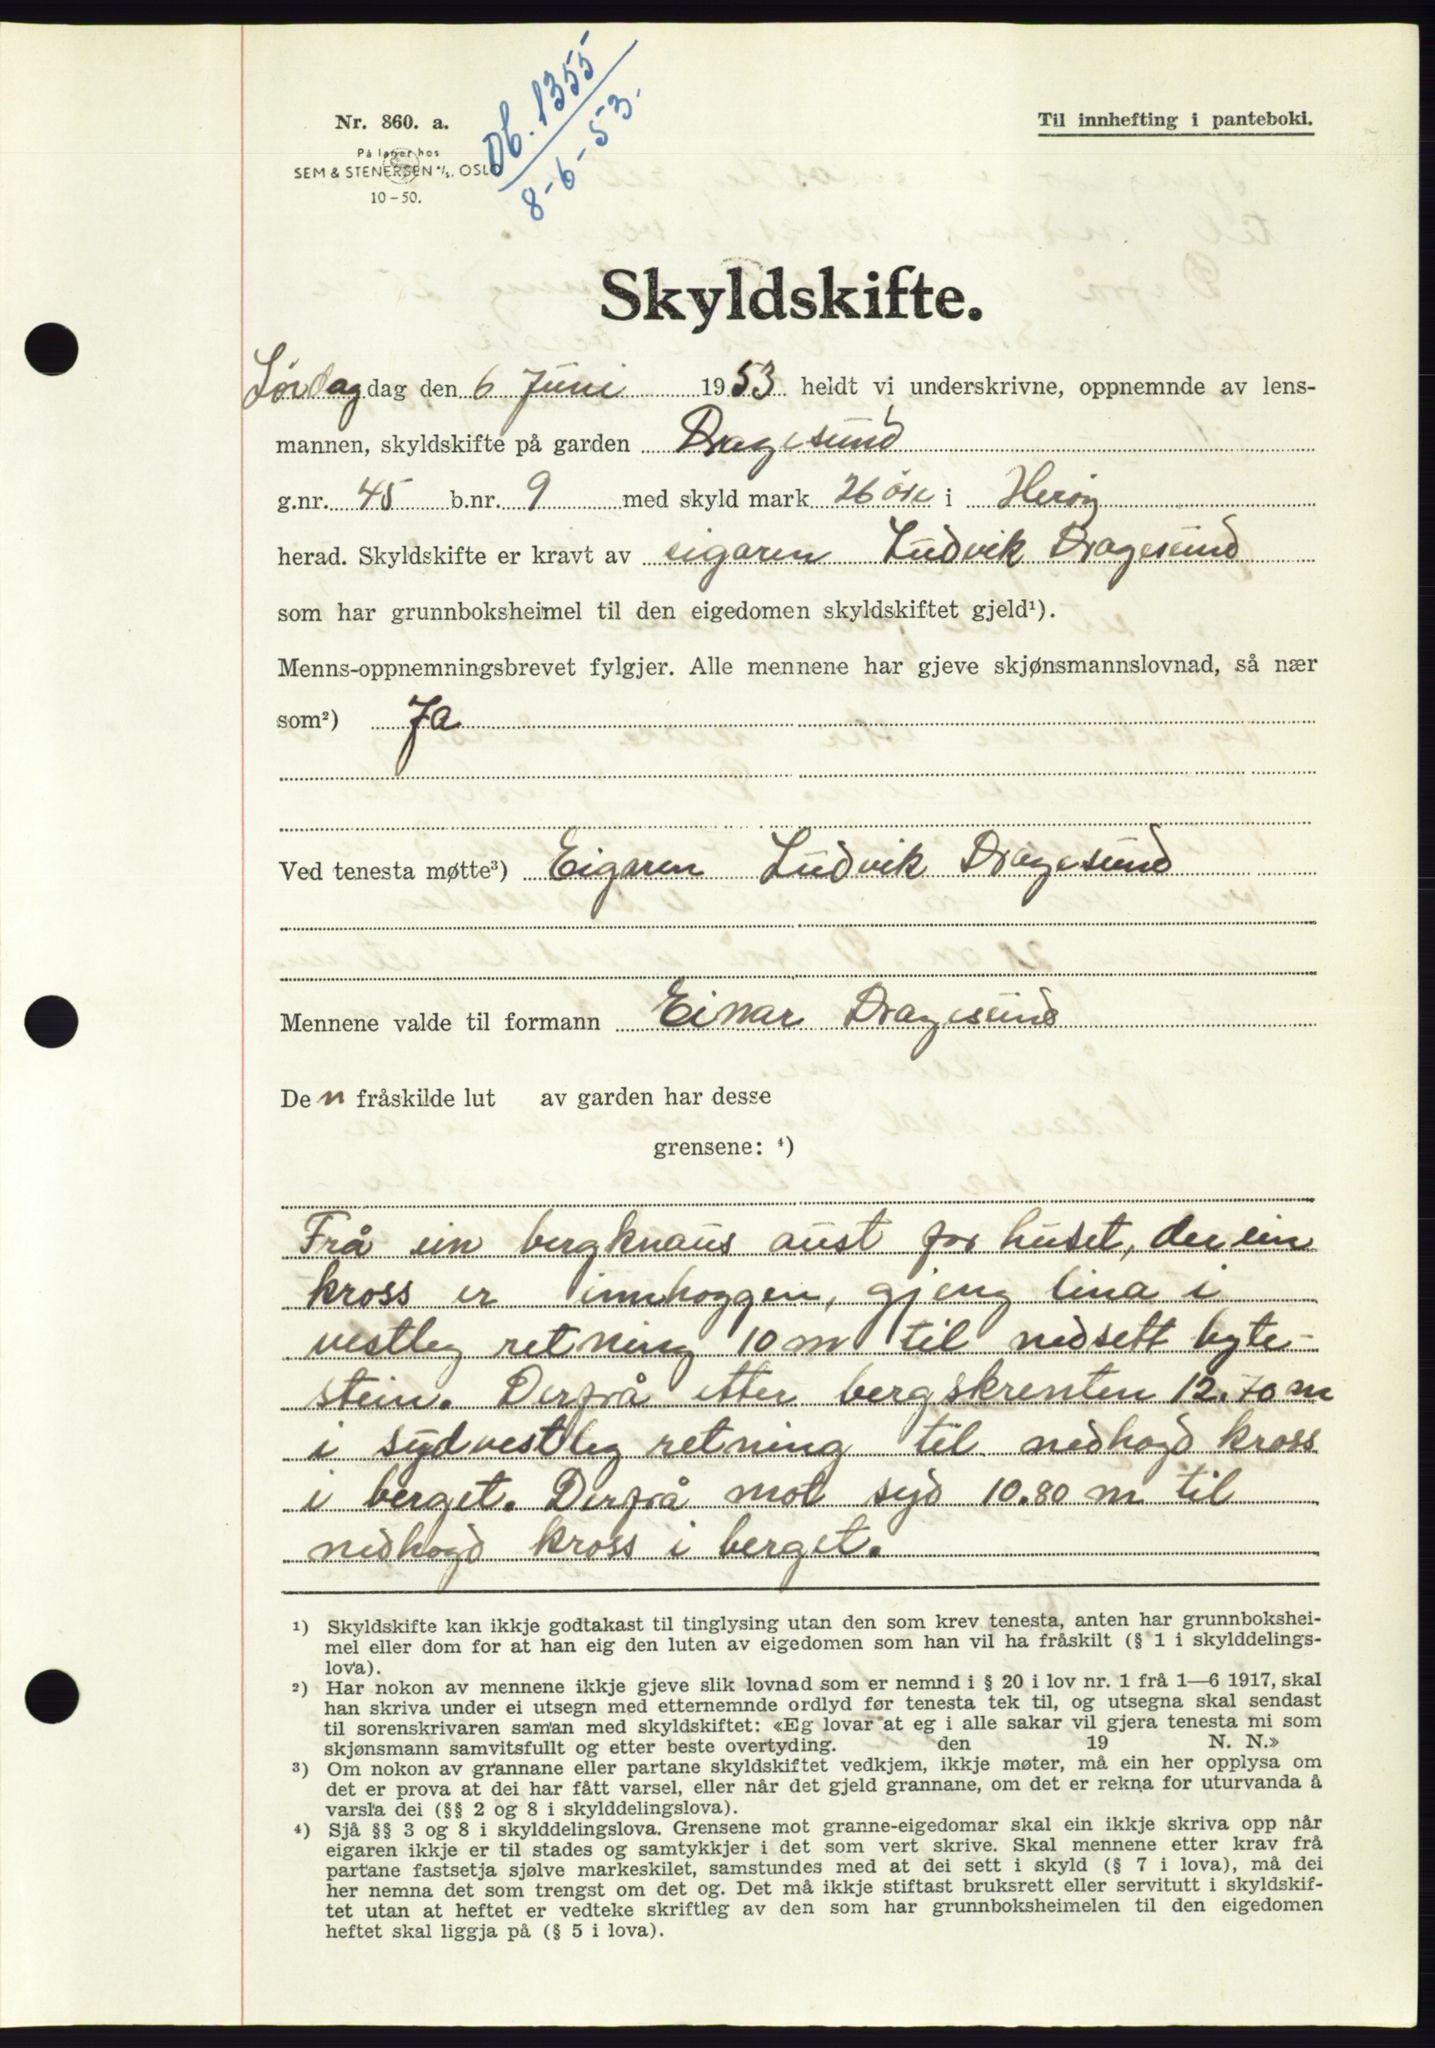 Db. 1355
8-6-53.
Nr. 860. a.
På lager hos
SEM & STENERSEN A/S, OSLO
10-50.
Til innhefting i panteboki.
Skyldskifte.
Lørdag dag den 6 Juni 1953 heldt vi underskrivne, oppnemnde av lens-
mannen, skyldskifte på garden Dragesund
g.nr. 45 b.nr. 9 med skyld mark 26 øre i Herøy
herad. Skyldskifte er kravt av eigaren Ludvik Dragesund
som har grunnboksheimel til den eigedomen skyldskiftet gjeld¹).
Menns-oppnemningsbrevet fylgjer. Alle mennene har gjeve skjønsmannslovnad, så nær
som²) Ja
Ved tenesta møtte³) Eigaren Ludvik Dragesund
Mennene valde til formann Einar Dragesund
De n fråskilde lut av garden har desse
grensene: ⁴)
Frå ein bergknaus aust for huset, der ein
kross er innhoggen, gjeng lina i
vestleg retning 10 m til nedsett byte-
stein. Derfrå etter bergskrenten 12.70 m
i sydvestleg retning til nedhogd kross
i berget. Derfrå mot syd 10.80 m til
nedhogd kross i berget.
¹) Skyldskifte kan ikkje godtakast til tinglysing utan den som krev tenesta, anten har grunnbokshei-
mel eller dom for at han eig den luten av eigedomen som han vil ha fråskilt (§ 1 i skylddelings-
lova).
²) Har nokon av mennene ikkje gjeve slik lovnad som er nemnd i § 20 i lov nr. 1 frå 1—6 1917, skal
han skriva under ei utsegn med etternemnde ordlyd før tenesta tek til, og utsegna skal sendast
til sorenskrivaren saman med skyldskiftet: «Eg lovar at eg i alle sakar vil gjera tenesta mi som
skjønsmann samvitsfullt og etter beste overtyding. den 19 N. N.»
³) Om nokon av grannane eller partane skyldskiftet vedkjem, ikkje møter, må ein her opplysa om
det er prova at dei har fått varsel, eller når det gjeld grannane, om det er rekna for uturvanda å
varsla dei (§§ 2 og 8 i skylddelingslova).
⁴) Sjå §§ 3 og 8 i skylddelingslova. Grensene mot granne-eigedomar skal ein ikkje skriva opp når
eigaren ikkje er til stades og samtykkjer i det som vert skrive. Skal mennene etter krav frå
partane fastsetja sjølve markeskilet, samstundes med at dei sett i skyld (§ 7 i lova), må dei
her nemna det som trengst om det og. Det må ikkje stiftast bruksrett eller servitutt i skyldskif-
tet utan at heftet er vedteke skriftleg av den som har grunnboksheimelen til den eigedomen
heftet skal liggja på (§ 5 i lova).